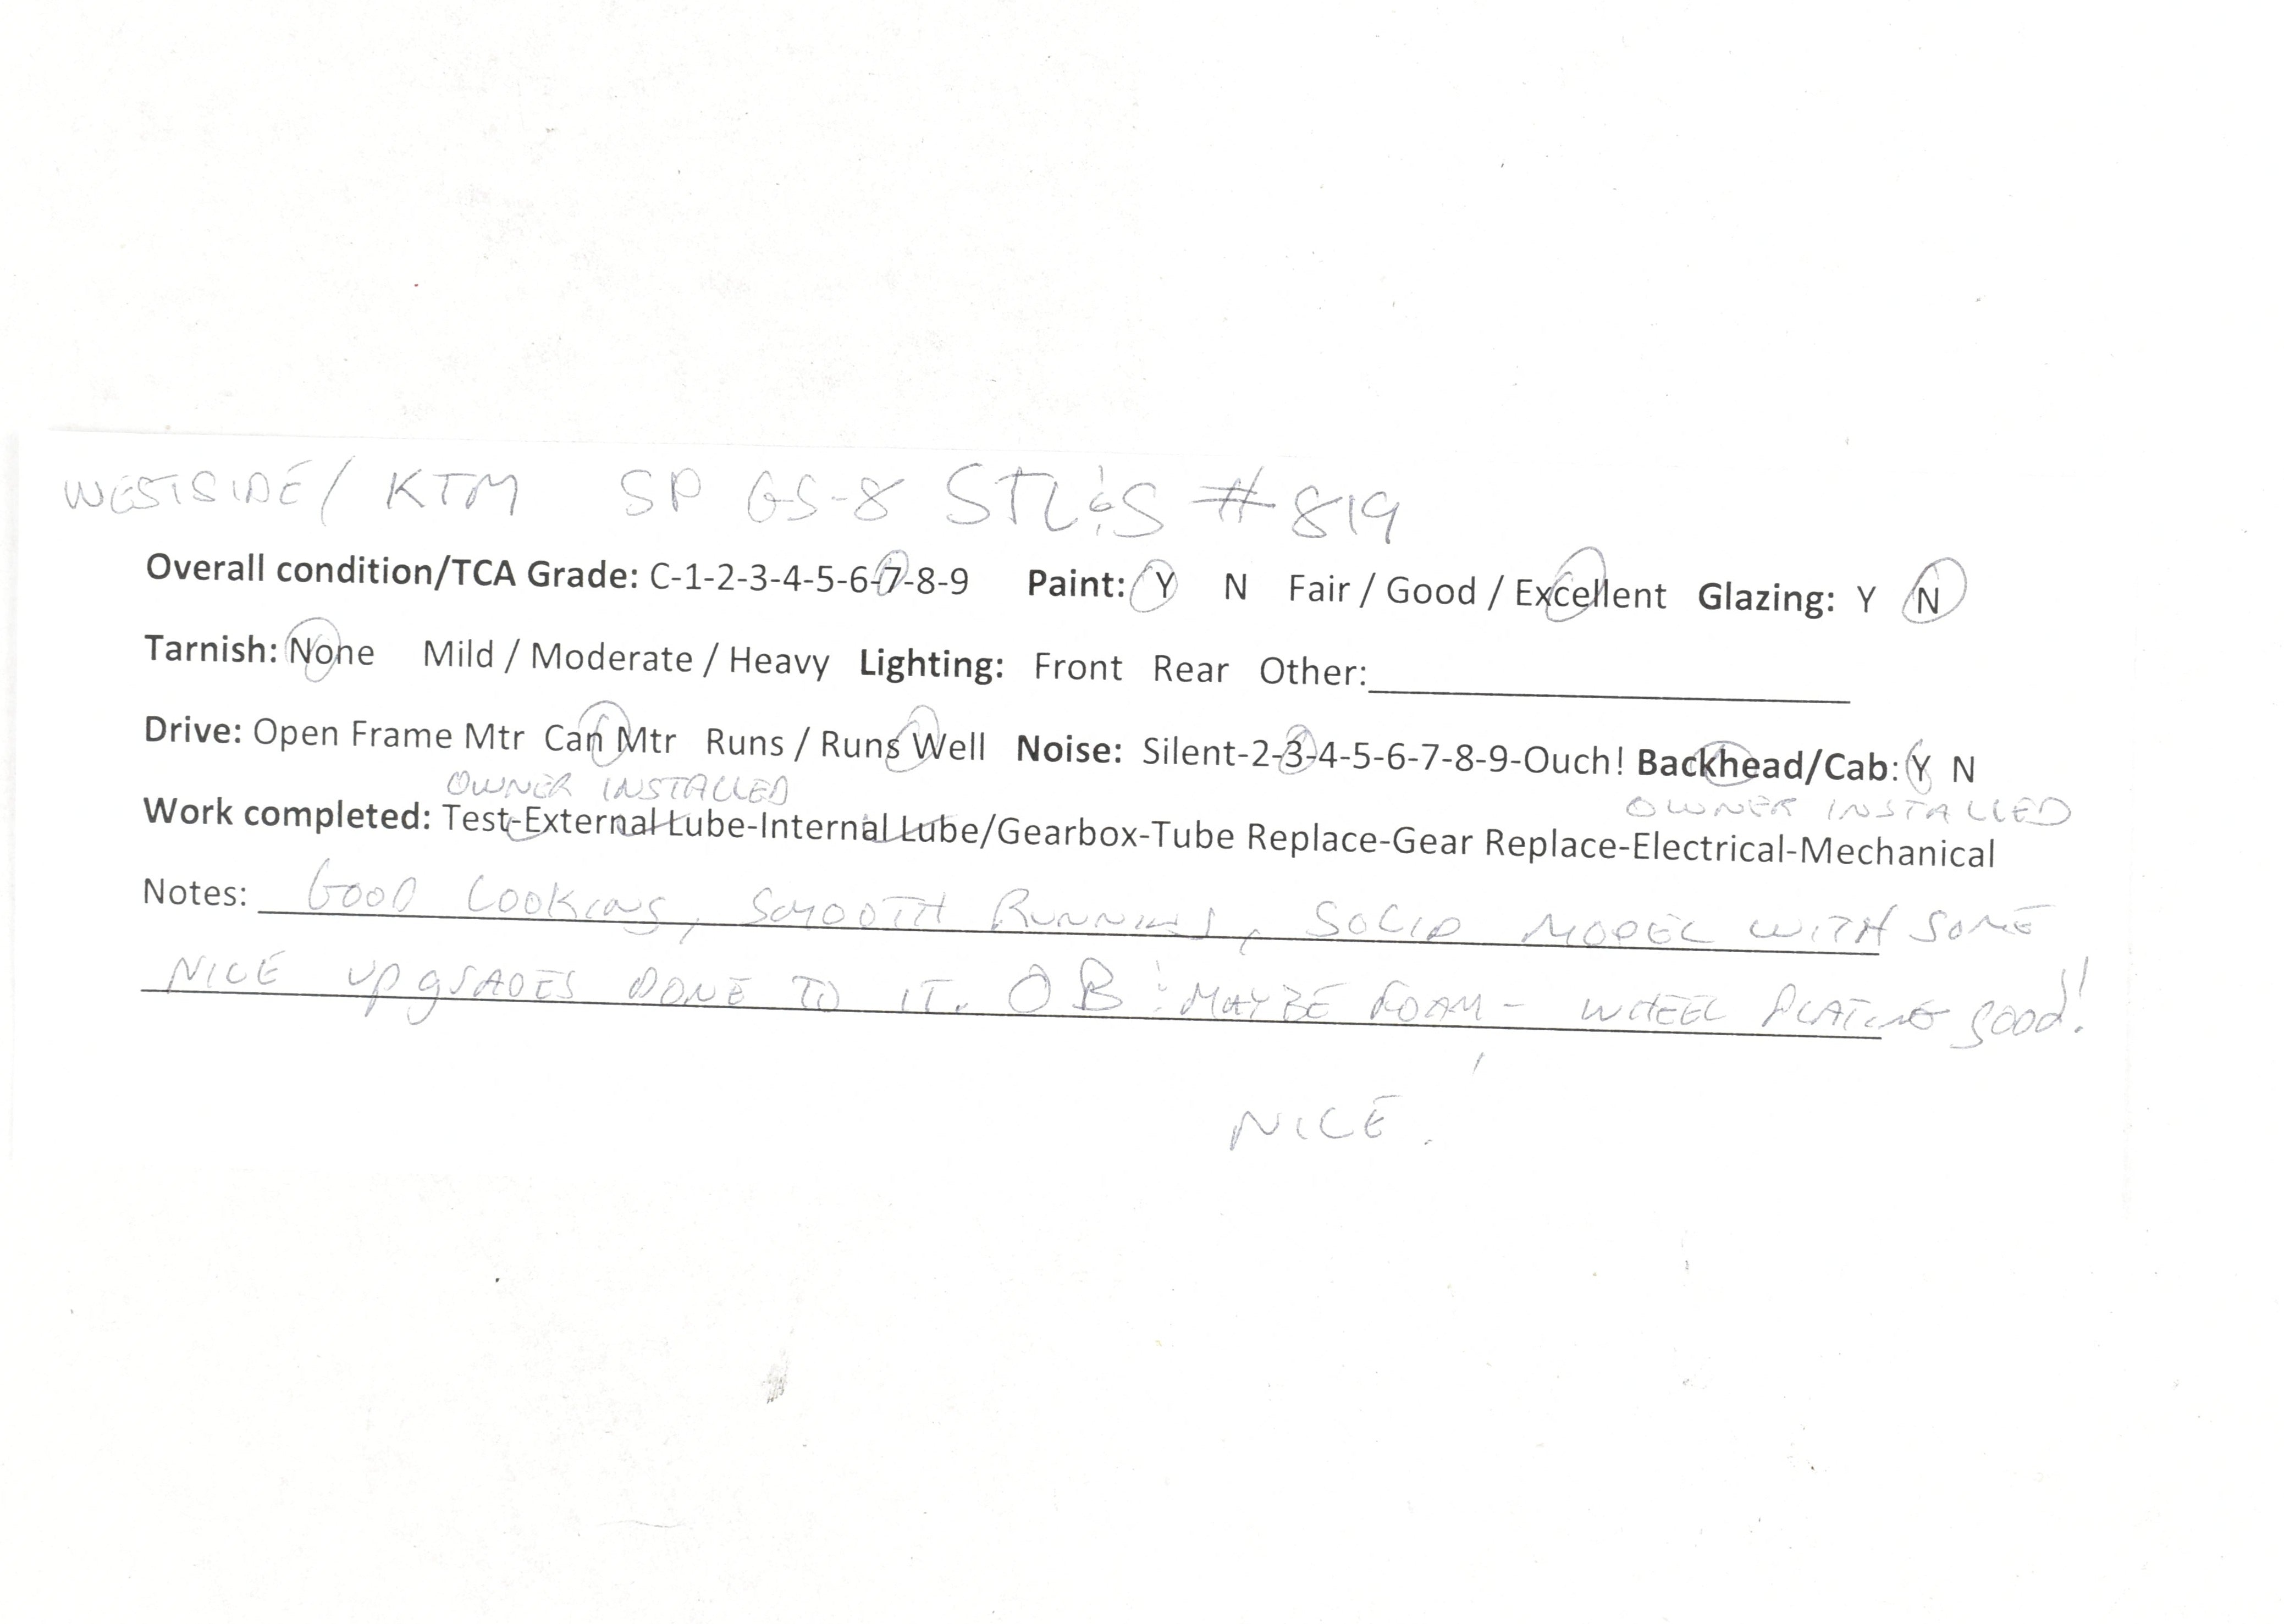 WESTSIDE/ KTM SP GS-8 STL&S #819
Overall condition/TCA Grade: C-1-2-3-4-5-6-7-8-9 Paint: Y N Fair / Good / Excellent Glazing: Y N
Tarnish: None Mild / Moderate / Heavy Lighting: Front Rear Other:
Drive: Open Frame Mtr Can Mtr Runs / Runs Well Noise: Silent-2-3-4-5-6-7-8-9-Ouch! Backhead/Cab: Y N
OWNER INSTALLED OWNER INSTALLED
Work completed: Test-External Lube-Internal Lube/Gearbox-Tube Replace-Gear Replace-Electrical-Mechanical
Notes: GOOD LOOKING, SMOOTH RUNNING, SOLID MODEL WITH SOME
NICE UPGRADES DONE TO IT. OB: MAYBE FOAM - WHEEL PLATING good!
NICE!